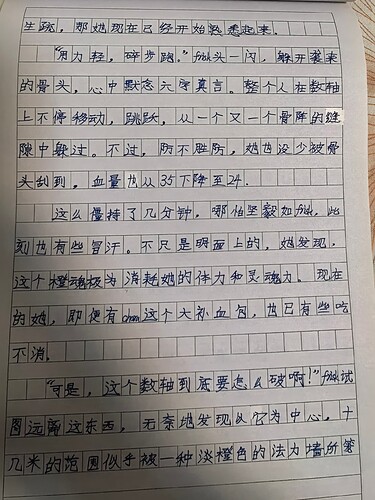 生疏，那她现在已经开始熟悉起来。
"用力轻，碎步跳。"frisk头一闪，躲开袭来
的骨头，心中默念六字真言。整个人在数轴
上不停移动，跳跃，从一个又一个骨阵的缝
隙中躲过。不过，防不胜防，她也没少被骨
头刮到，血量也从35下降至24.
这么僵持了几分钟，哪怕坚毅如frisk，此
刻也有些冒汗。不只是明面上的，她发现，
这个橙魂极为消耗她的体力和灵魂力。现在
的她，即便有chara这个大补血包，也已有些吃
不消。
"可是，这个数轴到底要怎么破啊！"frisk试
图远离这东西，无奈地发现以它为中心，十
几米的范围似乎被一种淡橙色的法力墙所笼